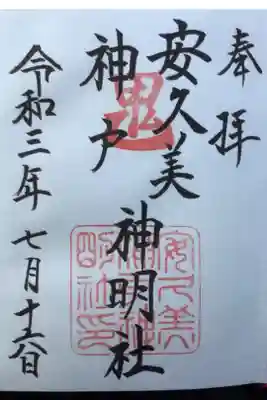 奉拝
鬼
安久美
神戸
神明社
安久美
神戸神
明社印
令和三年 七月十六日